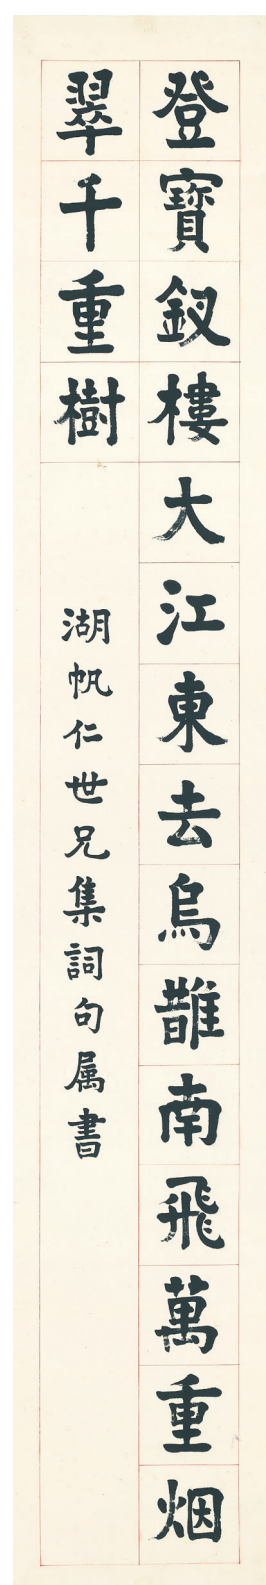 登寶釵樓大江東去烏鵲南飛萬重烟
翠千重樹
湖帆仁世兄集詞句属書